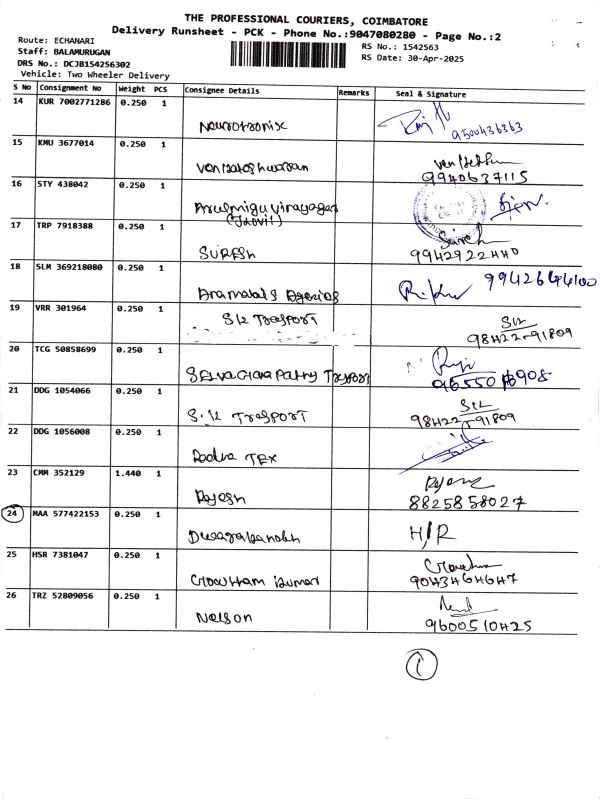 THE PROFESSIONAL COURIERS, COIMBATORE
Delivery Runsheet - PCK - Phone No.:9047080280 - Page No.:2
Route: ECHANARI
Staff: BALAMURUGAN
DRS No.: DCJB154256302
Vehicle: Two Wheeler Delivery
RS No.: 1542563
RS Date: 30-Apr-2025
S No Consignment No Weight PCS Consignee Details Remarks Seal & Signature
14 KUR 7002771286 0.250 1
Neurotronix
9500436363
15 KMU 3677014 0.250 1
Venkateshwaran
9940637115
16 STY 438042 0.250 1
Arulmigu vinayagar
17 TRP 7918388 0.250 1
Suresh
9942922440
18 SLM 369218080 0.250 1
Agencies
9942644100
19 VRR 301964 0.250 1
S.K Trasport
SK
98422-91809
20 TCG 50858699 0.250 1
Trsport
21 DDG 1054066 0.250 1
S.K Trasport
SK
98422-91809
22 DDG 1056008 0.250 1
Tex
23 CMM 352129 1.440 1
Rajesh
8825858027
24 MAA 577422153 0.250 1
H/R
25 HSR 7381047 0.250 1
Gowtham kumar
9043464647
26 TRZ 52809056 0.250 1
Nelson
9600510425
1